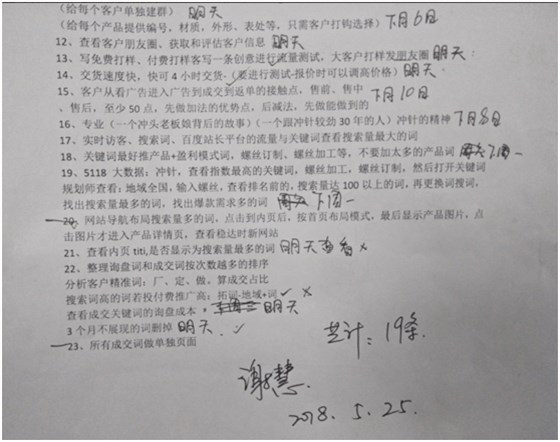 (给每个客户单独建群) 明天
(给每个产品提供编号,材质,外形、表处等,只需客户打钩选择) 下月6日
12、查看客户朋友圈、获取和评估客户信息 明天
13、写免费打样、付费打样客写一条创意进行流量测试,大客户打样发朋友圈 明天
14、交货速度快,快可4小时交货-(要进行测试-报价时可以调高价格) 明天
15、客户从看广告进入广告到成交到返单的接触点,售前、售中 下月10日
、售后,至少50点,先做加法的优势点,后减法,先做能做到的
16、专业(一个冲头老板娘背后的故事)(一个跟冲针较劲30年的人)冲针的精神 下月8日
17、实时访客、搜索词、百度站长平台的流量与关键词查看搜索量最大的词
18、关键词最好推产品+盈利模式词,螺丝订制、螺丝加工等,不要加太多的产品词 下周一
19、5118大数据:冲针,查看指数最高的关键词,螺丝加工,螺丝订制,然后打开关键词
规划师查看:地域全国,输入螺丝,查看排名前的,搜索量达100以上的词,再更换词搜词,
找出搜索量最多的词,找出爆款需求多的词 下周一
20、网站导航布局搜索量多的词,点击到内页后,按首页布局模式,最后显示产品图片,点
击图片才进入产品详情页,查看稳达时新网站
21、查看内页titi,是否显示为搜索量最多的词 明天查看 ×
22、整理询盘词和成交词按次数越多的排序
分析客户精准词:厂、定、做、算成交占比
搜索词高的词若投付费推广高:拓词-地域+词 ✓ ×
查看成交关键词的询盘成本, 明天
3个月不展现的词删掉 明天. ✓
23、所有成交词做单独页面
共计:19条
谢慧.
2018.5.25.